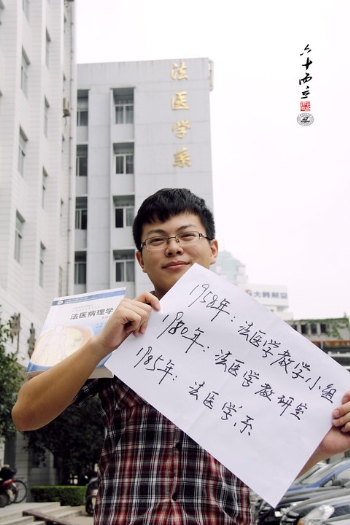 六十西立
法医学系
法医病理学
1958年：法医学教学小组
1980年：法医学教研室
1985年：法医学系